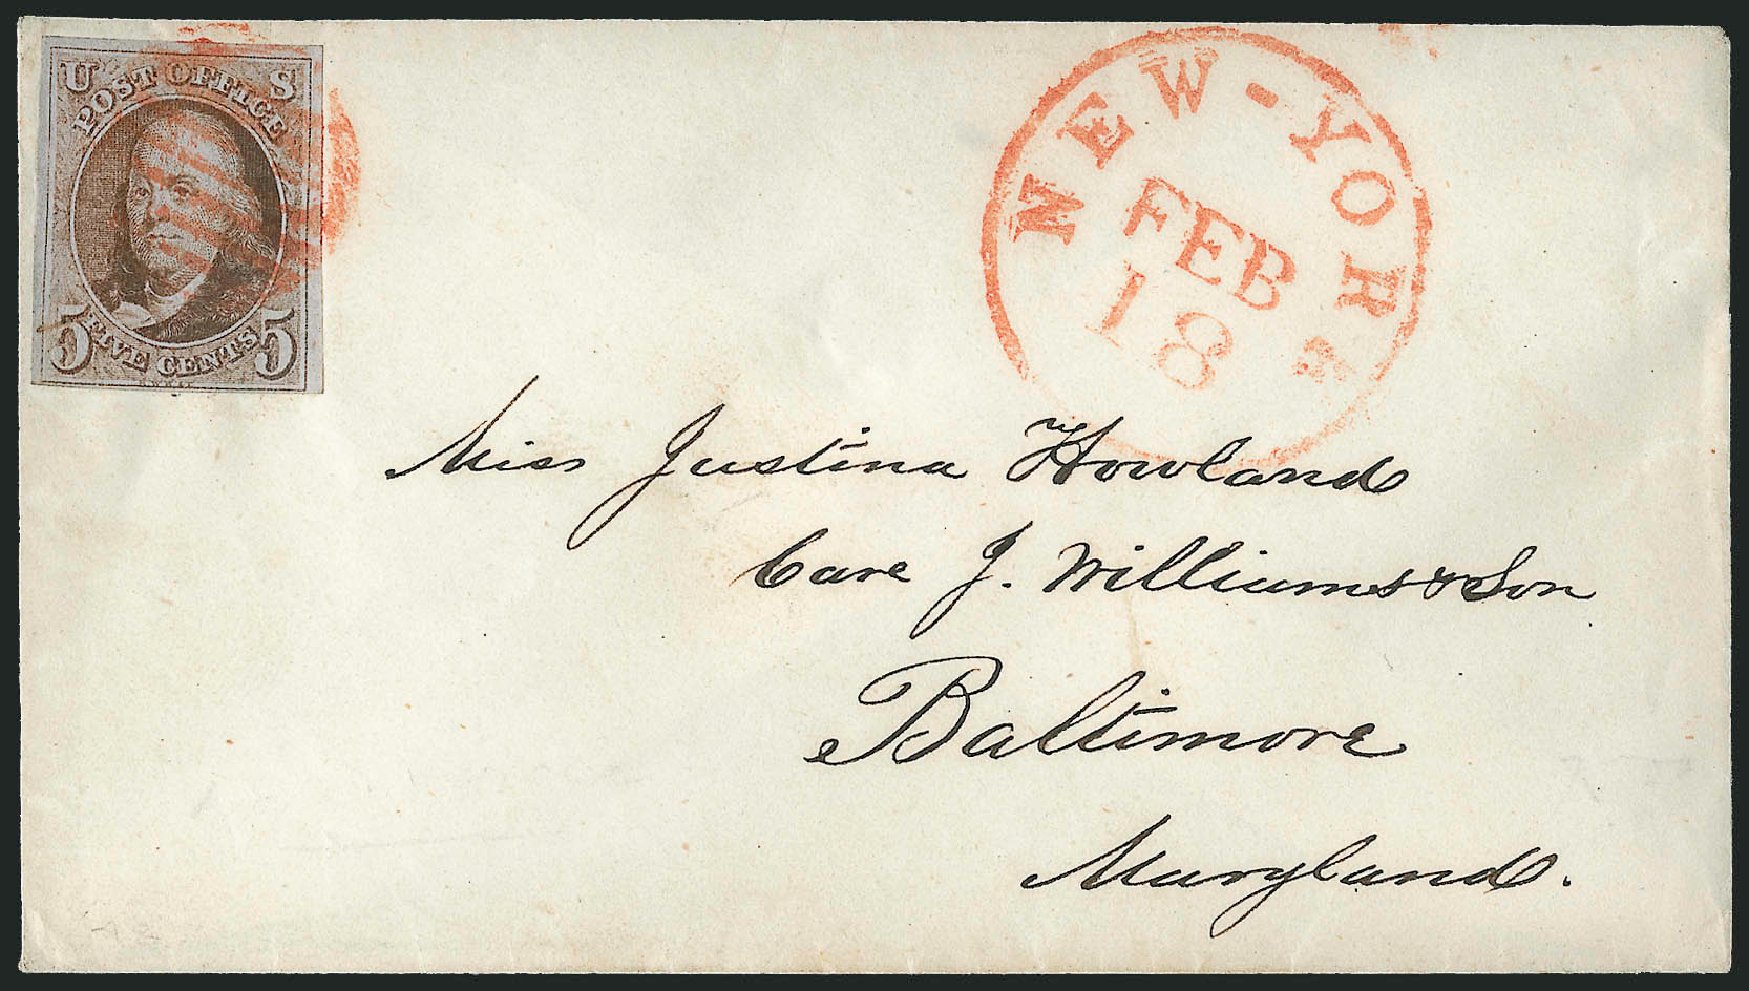 U S
POST OFFICE
5 FIVE CENTS 5
NEW-YORK
FEB
18
Miss Justina Howland
Care J. Williams & Son
Baltimore
Maryland.